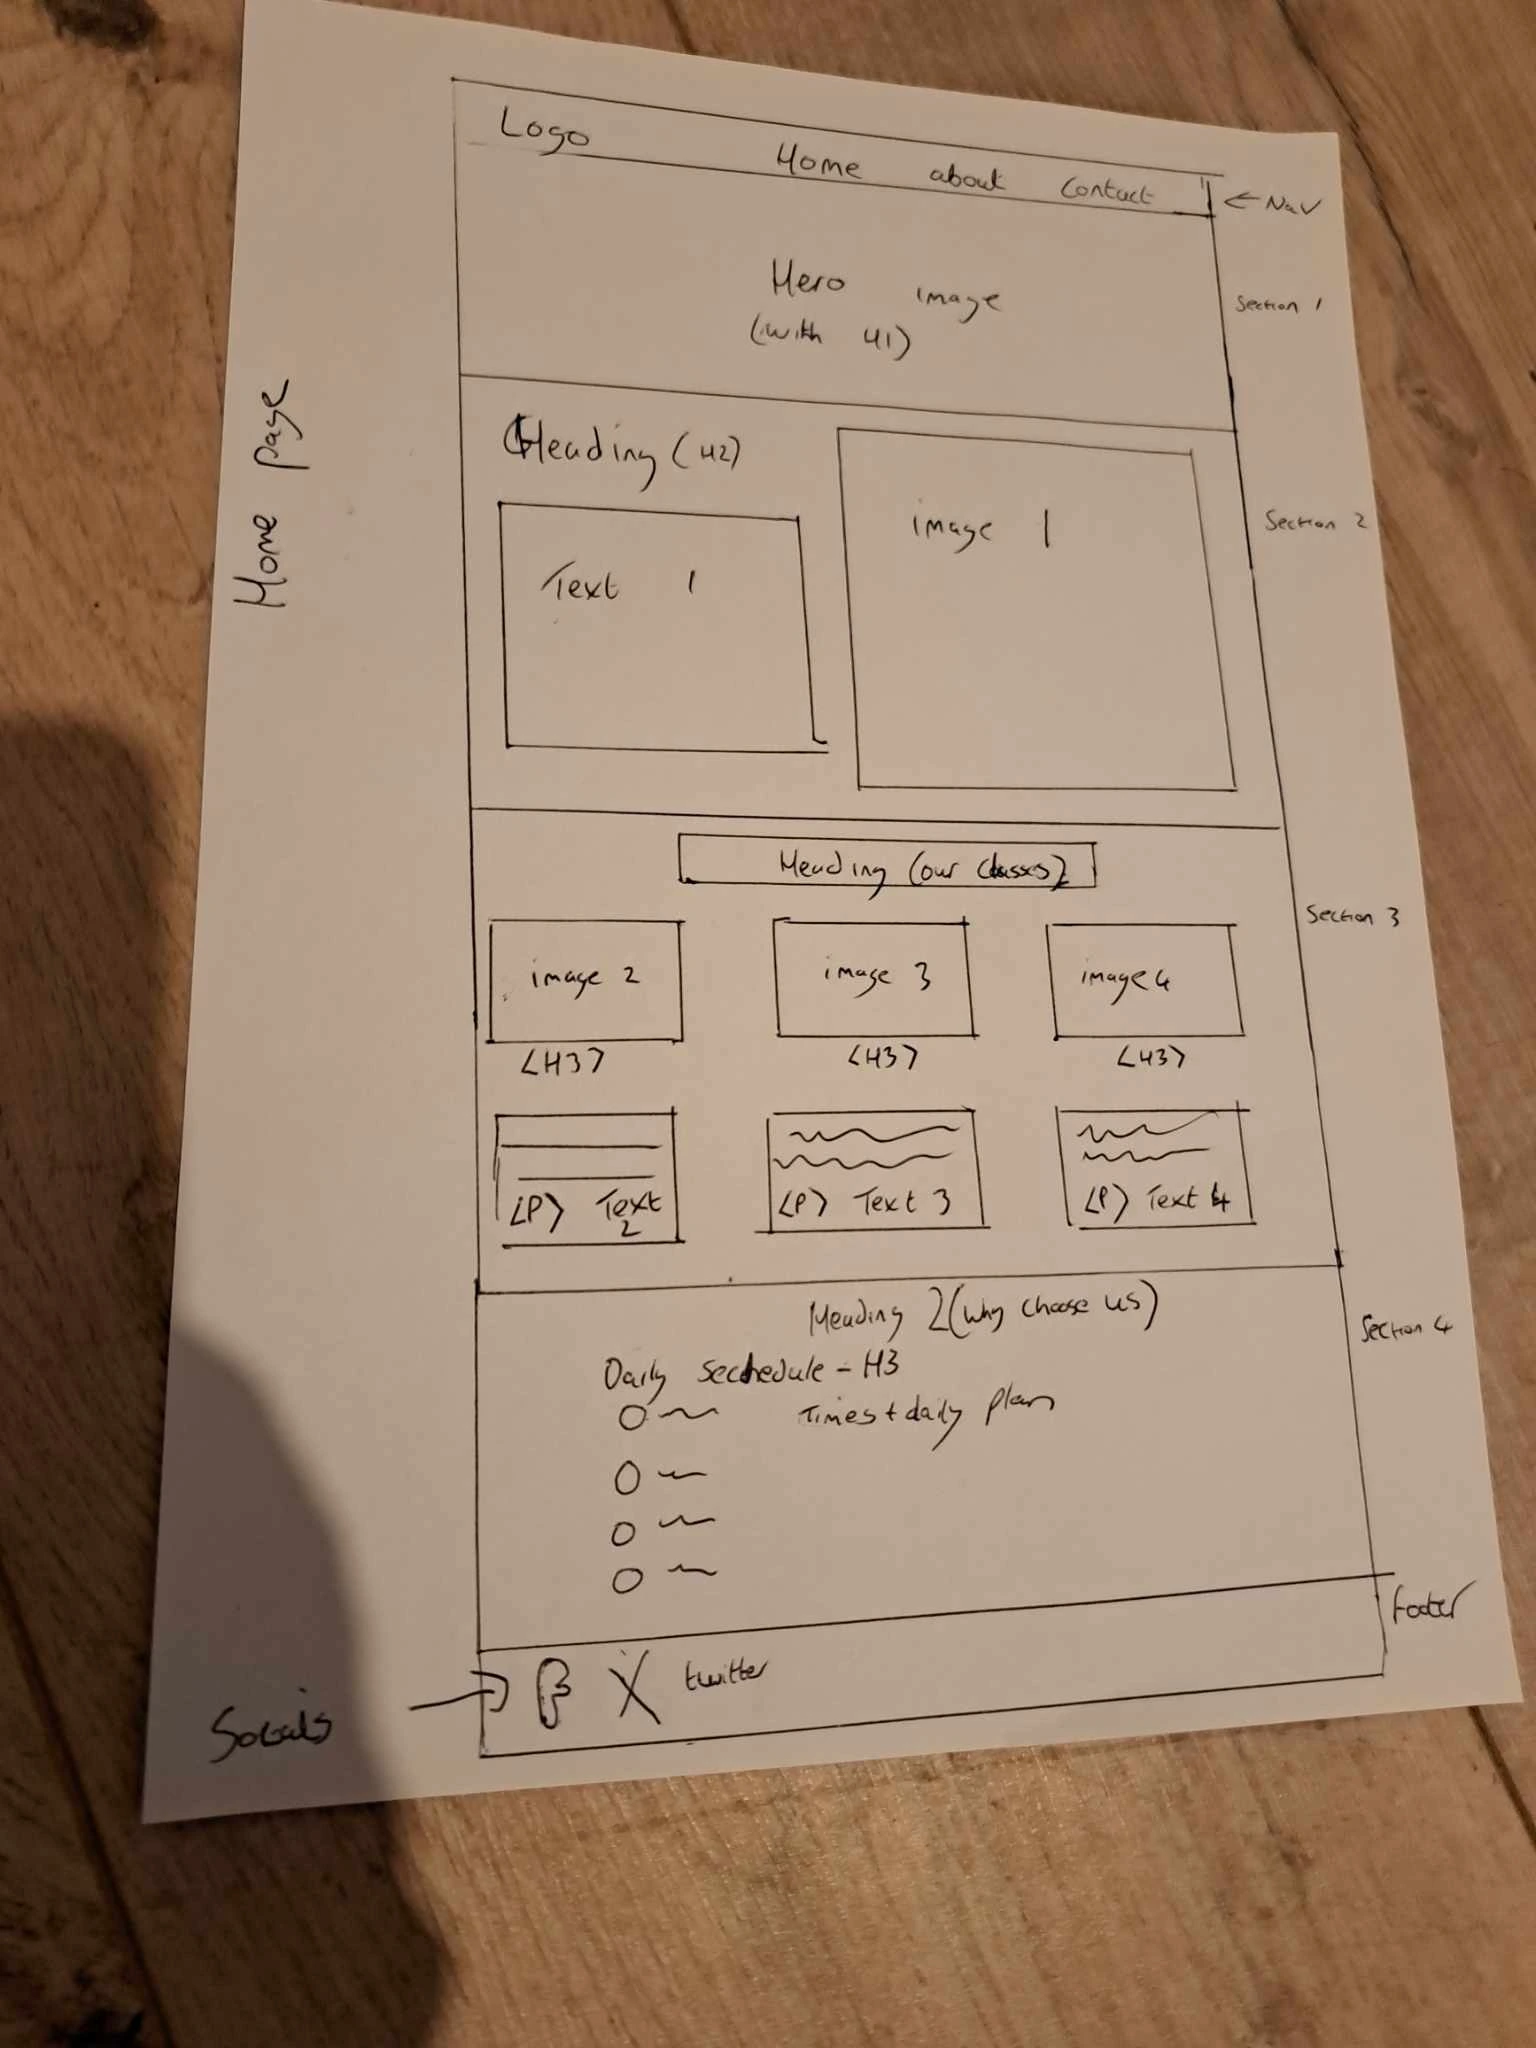 Home page
Logo
Home about Contact
← Nav
Hero image
(with H1)
Section 1
Heading (H2)
Text 1
image 1
Section 2
Heading (our classes)
Section 3
image 2 image 3 image 4
<H3> <H3> <H3>
<P> Text 2
<P> Text 3
<P> Text 4
Heading 2 (why choose us)
Section 4
Daily secchedule - H3
Times + daily plan
footer
Socials
F X twitter